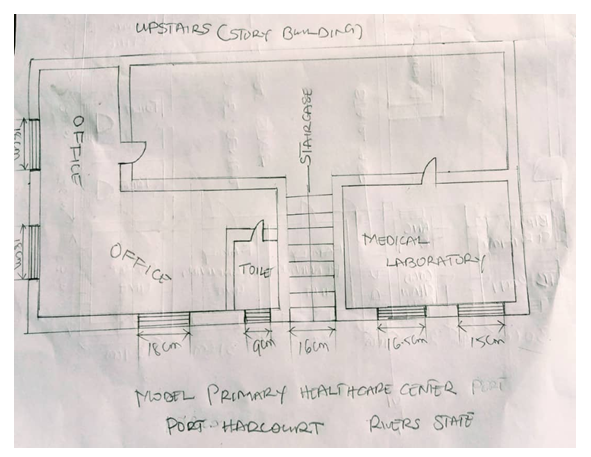 UPSTAIRS (STORY BUILDING)
STAIRCASE
OFFICE
OFFICE
TOILE
MEDICAL
LABORATORY
18cm
9cm
16cm
16.5cm
15cm
MODEL PRIMARY HEALTHCARE CENTER PORT
PORT-HARCOURT RIVERS STATE